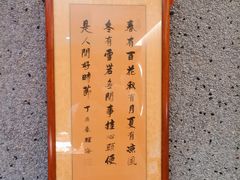 春有百花秋有月夏有凉風
冬有雪若無閒事挂心頭便
是人間好時節